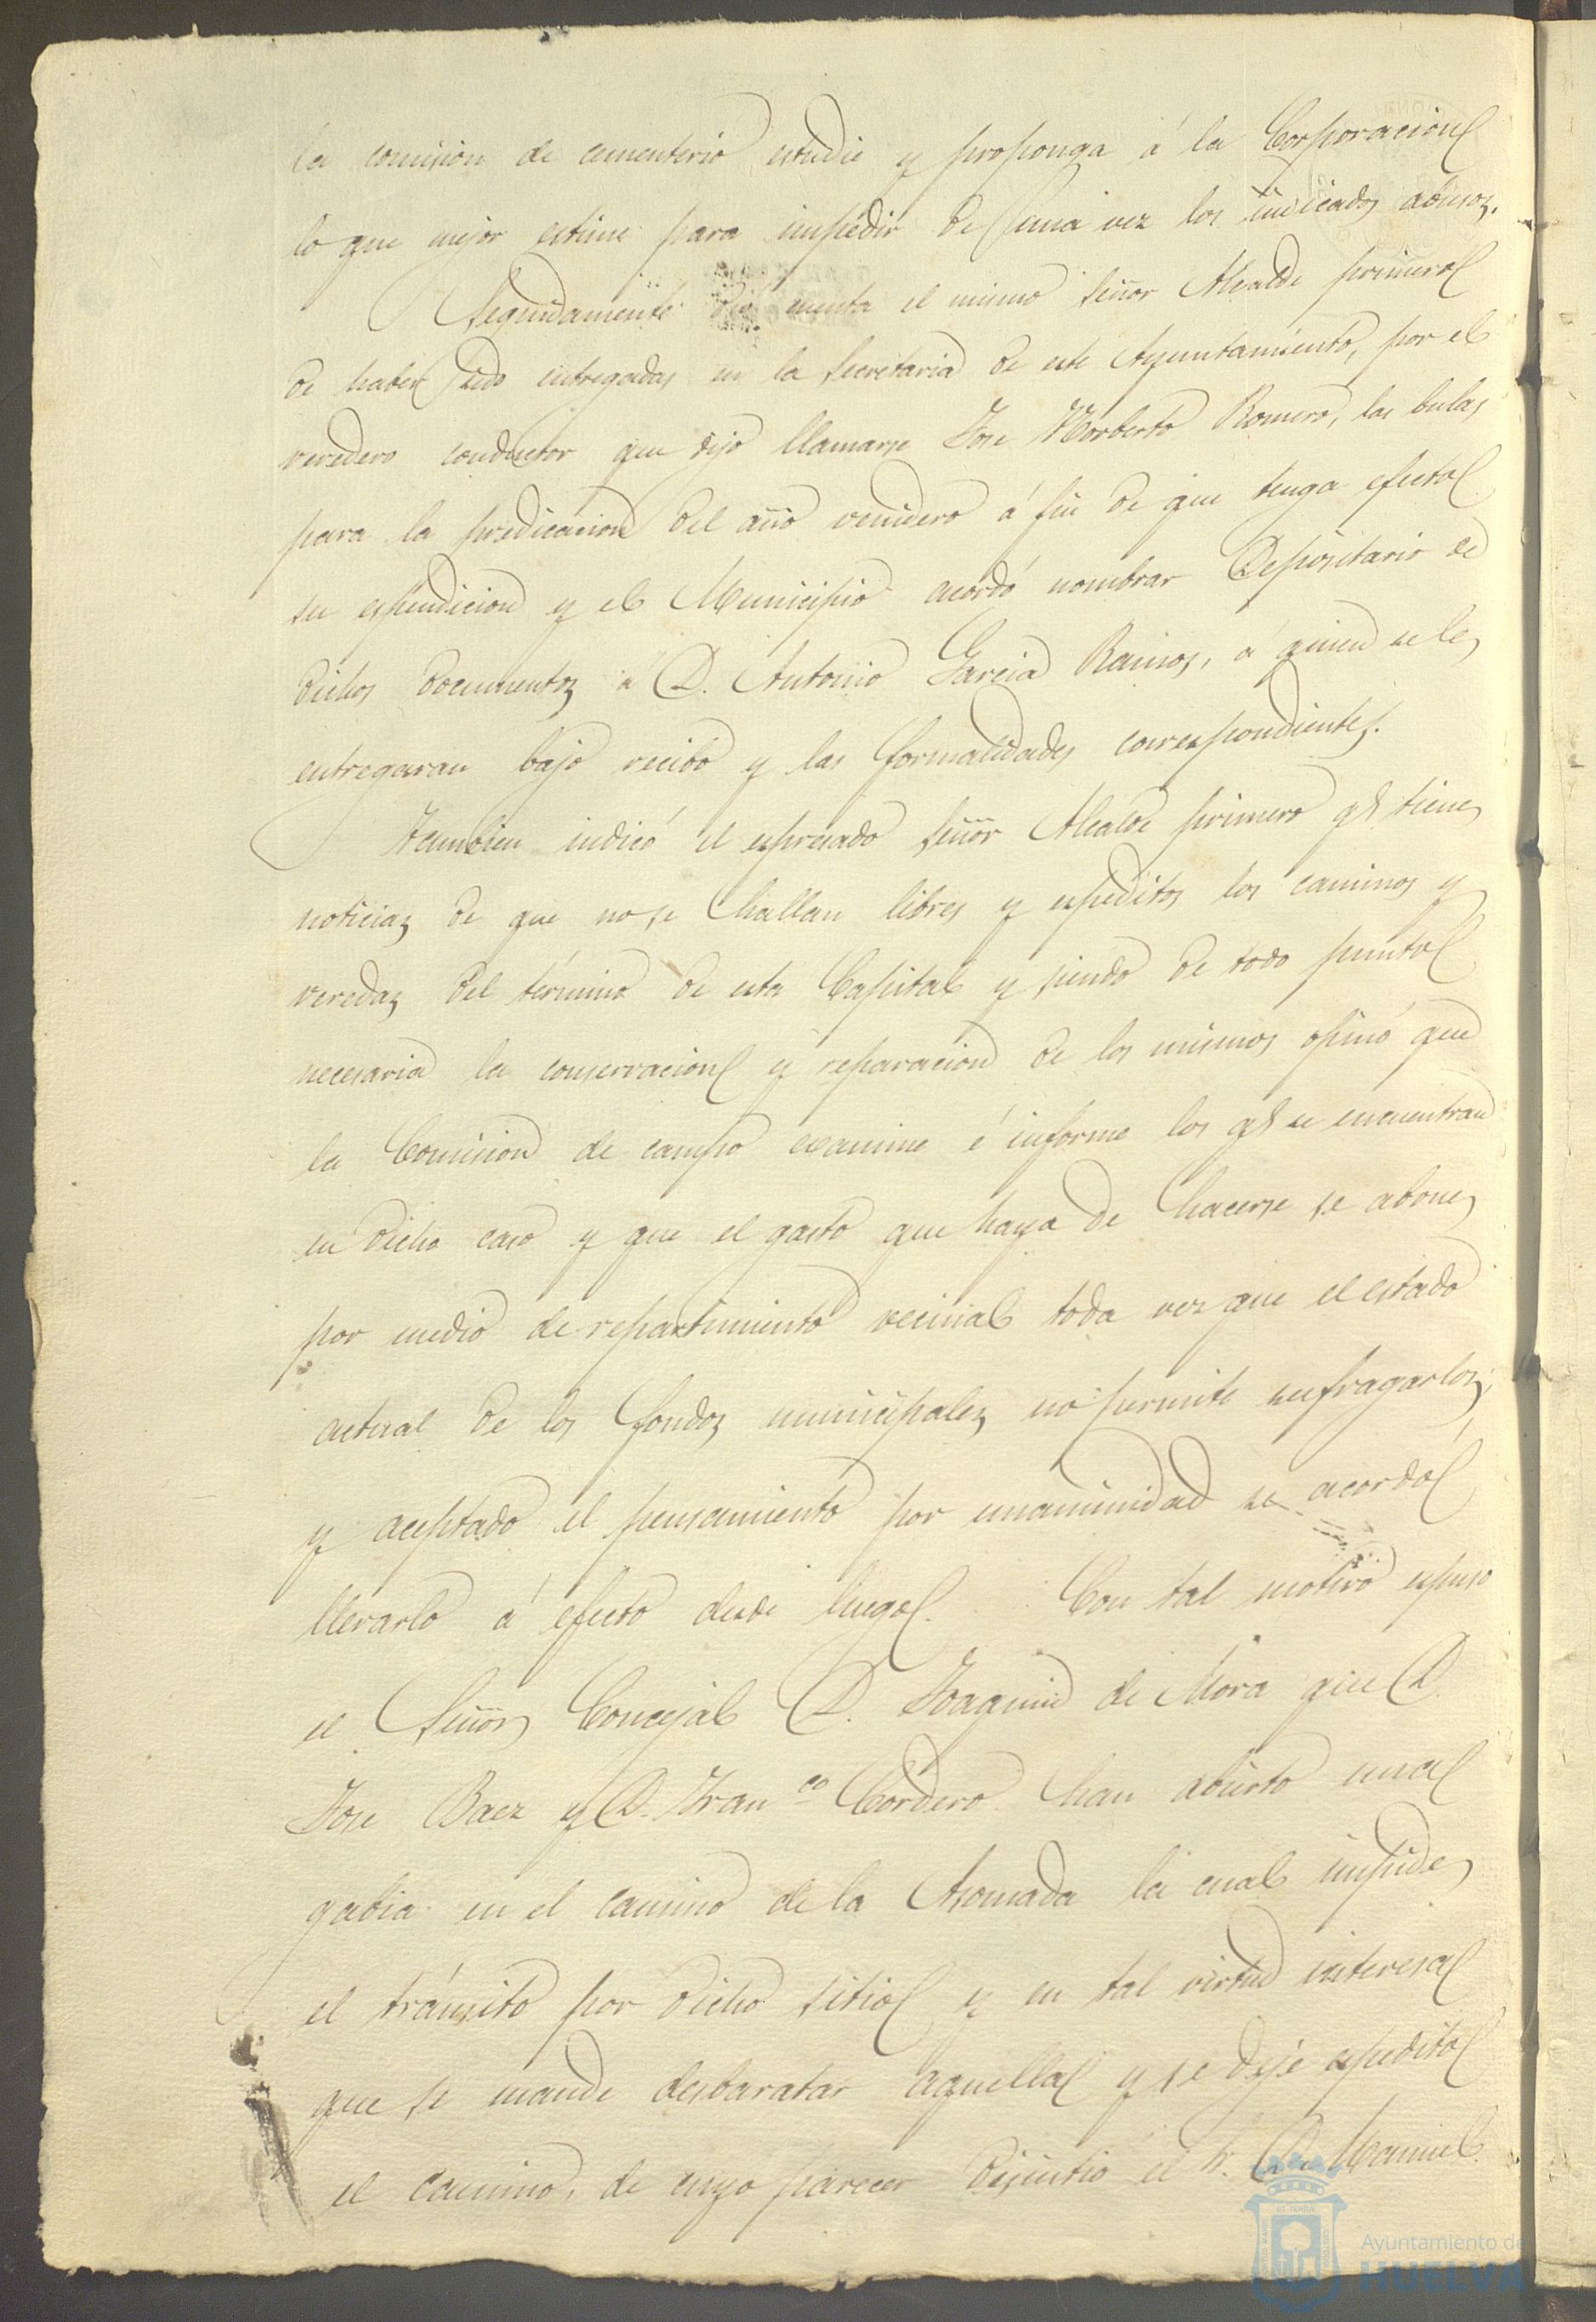 la comision de cementerio estudie y proponga á la Corporacion
lo que mejor estime para impedir de una vez los indicados abusos.
Seguidamente dió cuenta el mismo Señor Alcalde primero
de haber sido entregadas en la Secretaria de este Ayuntamiento, por el
veredero conductor que dijo llamarse Jose Norberto Romero, las bulas
para la predicacion del año venidero á fin de que tenga efecto
su espendicion y el Municipio acordó nombrar Depositario de
dichos documentos á D. Antonio Garcia Ramos, á quien se le
entregaran bajo recibo y las formalidades correspondientes.
Tambien indicó el espresado Señor Alcalde primero qe tiene
noticias de que no se hallan libres y espeditos los caminos y
veredas del término de esta Capital y siendo de todo punto
necesaria la conservacion y reparacion de los mismos opinó que
la Comision de campo examine é informe los qe se encuentran
en dicho caso y que el gasto que haya de hacerse se abone
por medio de repartimiento vecinal toda vez que el estado
actual de los fondos municipales no permite sufragarlos;
y aceptado el pensamiento por unanimidad se acordó
llevarlo á efecto desde luego. Con tal motivo espuso
el Señor Concejal D. Joaquin de Mora que D.
Jose Baez y D. Franco Cordero han abierto una
gabia en el camino de la Asomada la cual impide
el tránsito por dicho sitio y en tal virtud interesa
que se mande desbaratar aquella y se deje espedito
el camino, de cuyo parecer disintió el Sr. D. Manuel
Ayuntamiento de
HUELVA